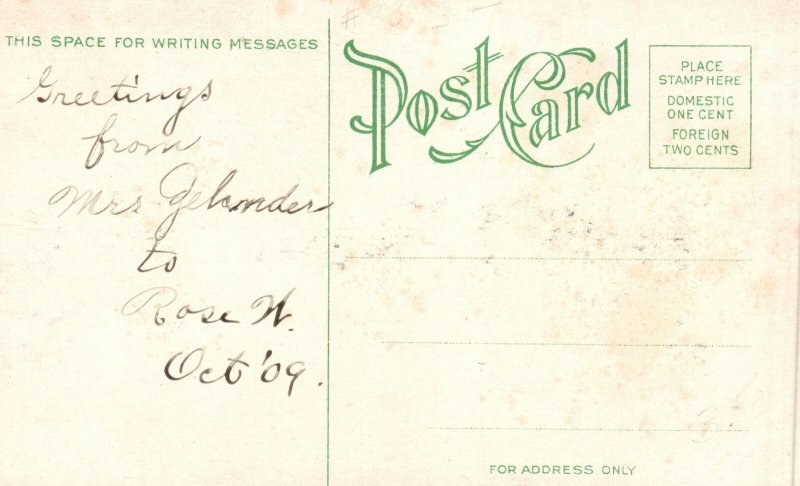 THIS SPACE FOR WRITING MESSAGES
Greetings
from
Mrs
to
Rose W.
Oct '09.
Post Card
PLACE
STAMP HERE
DOMESTIC
ONE CENT
FOREIGN
TWO CENTS
FOR ADDRESS ONLY